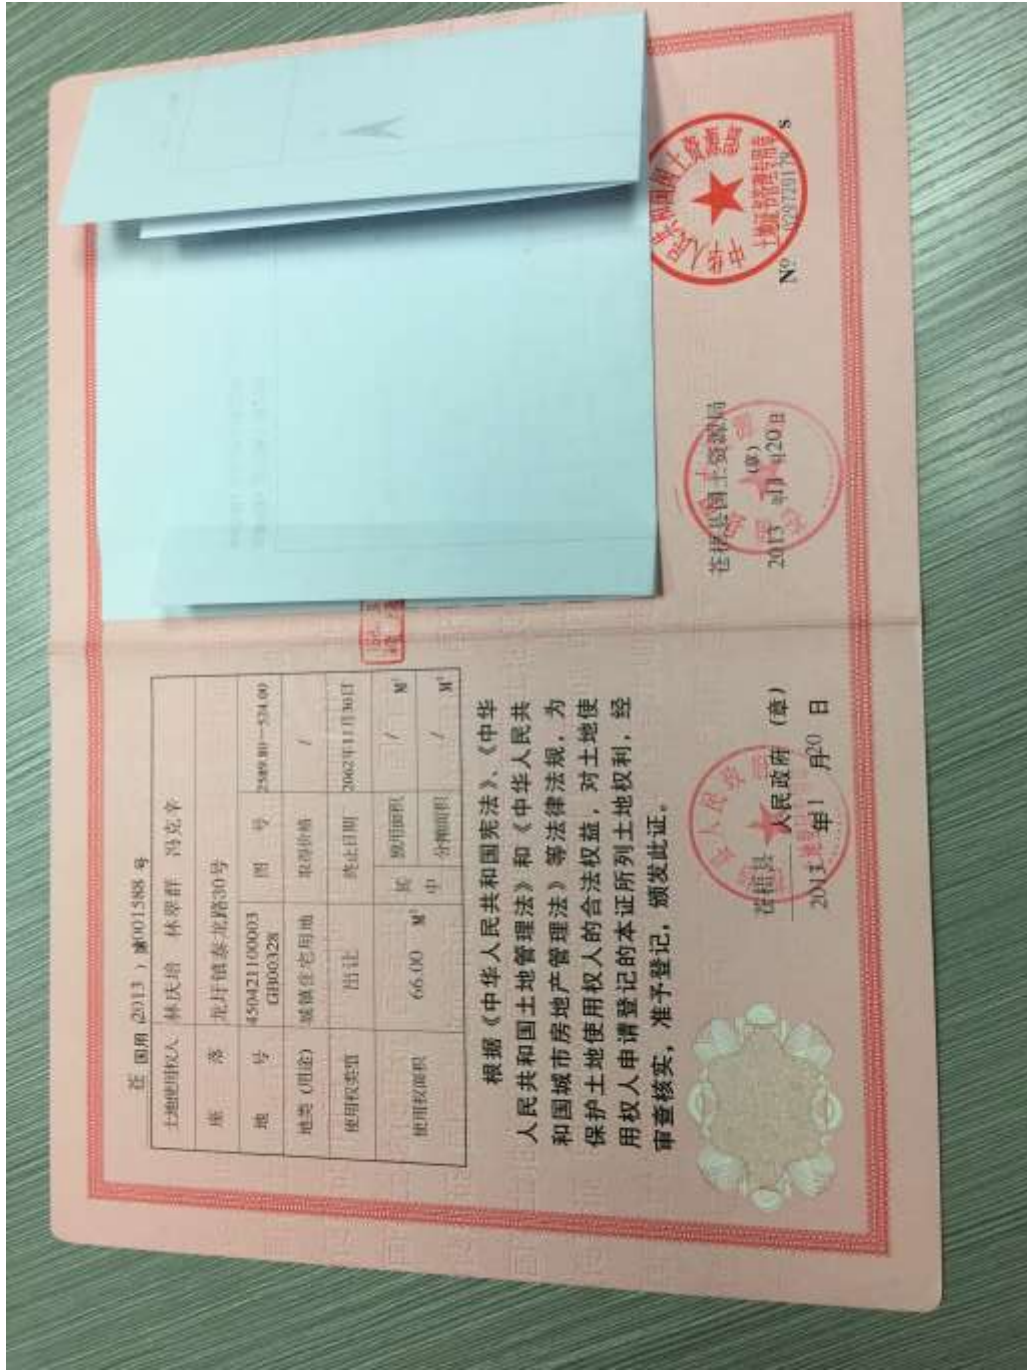 苍 国用 (2013) 第001588 号
土地使用权人 林庆培 林翠群 冯克辛
座 落 龙圩镇泰北路30号
地 号 450421100003 GB00328 图 号 2589.80-534.00
地类(用途) 城镇住宅用地 取得价格 /
使用权类型 出让 终止日期 2062年11月30日
使用权面积 66.00 M² 其中 独用面积 / M²
分摊面积 / M²
根据《中华人民共和国宪法》、《中华
人民共和国土地管理法》和《中华人民共
和国城市房地产管理法》等法律法规,为
保护土地使用权人的合法权益,对土地使
用权人申请登记的本证所列土地权利,经
审查核实,准予登记,颁发此证。
苍梧县 人民政府 (章)
2013 年11 月20 日
苍梧县国土资源局
(章)
2013 年11 月20 日
中华人民共和国国土资源部
土地证书管理专用章
Nº